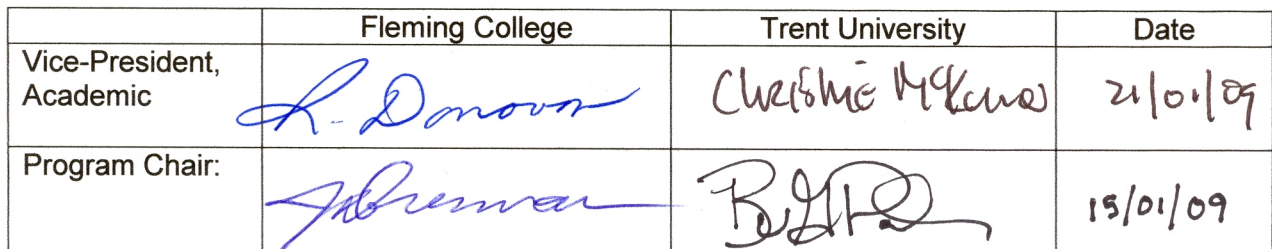 Fleming College Trent University Date
Vice-President,
Academic
R. Donovan Christine 21/01/09
Program Chair:
15/01/09